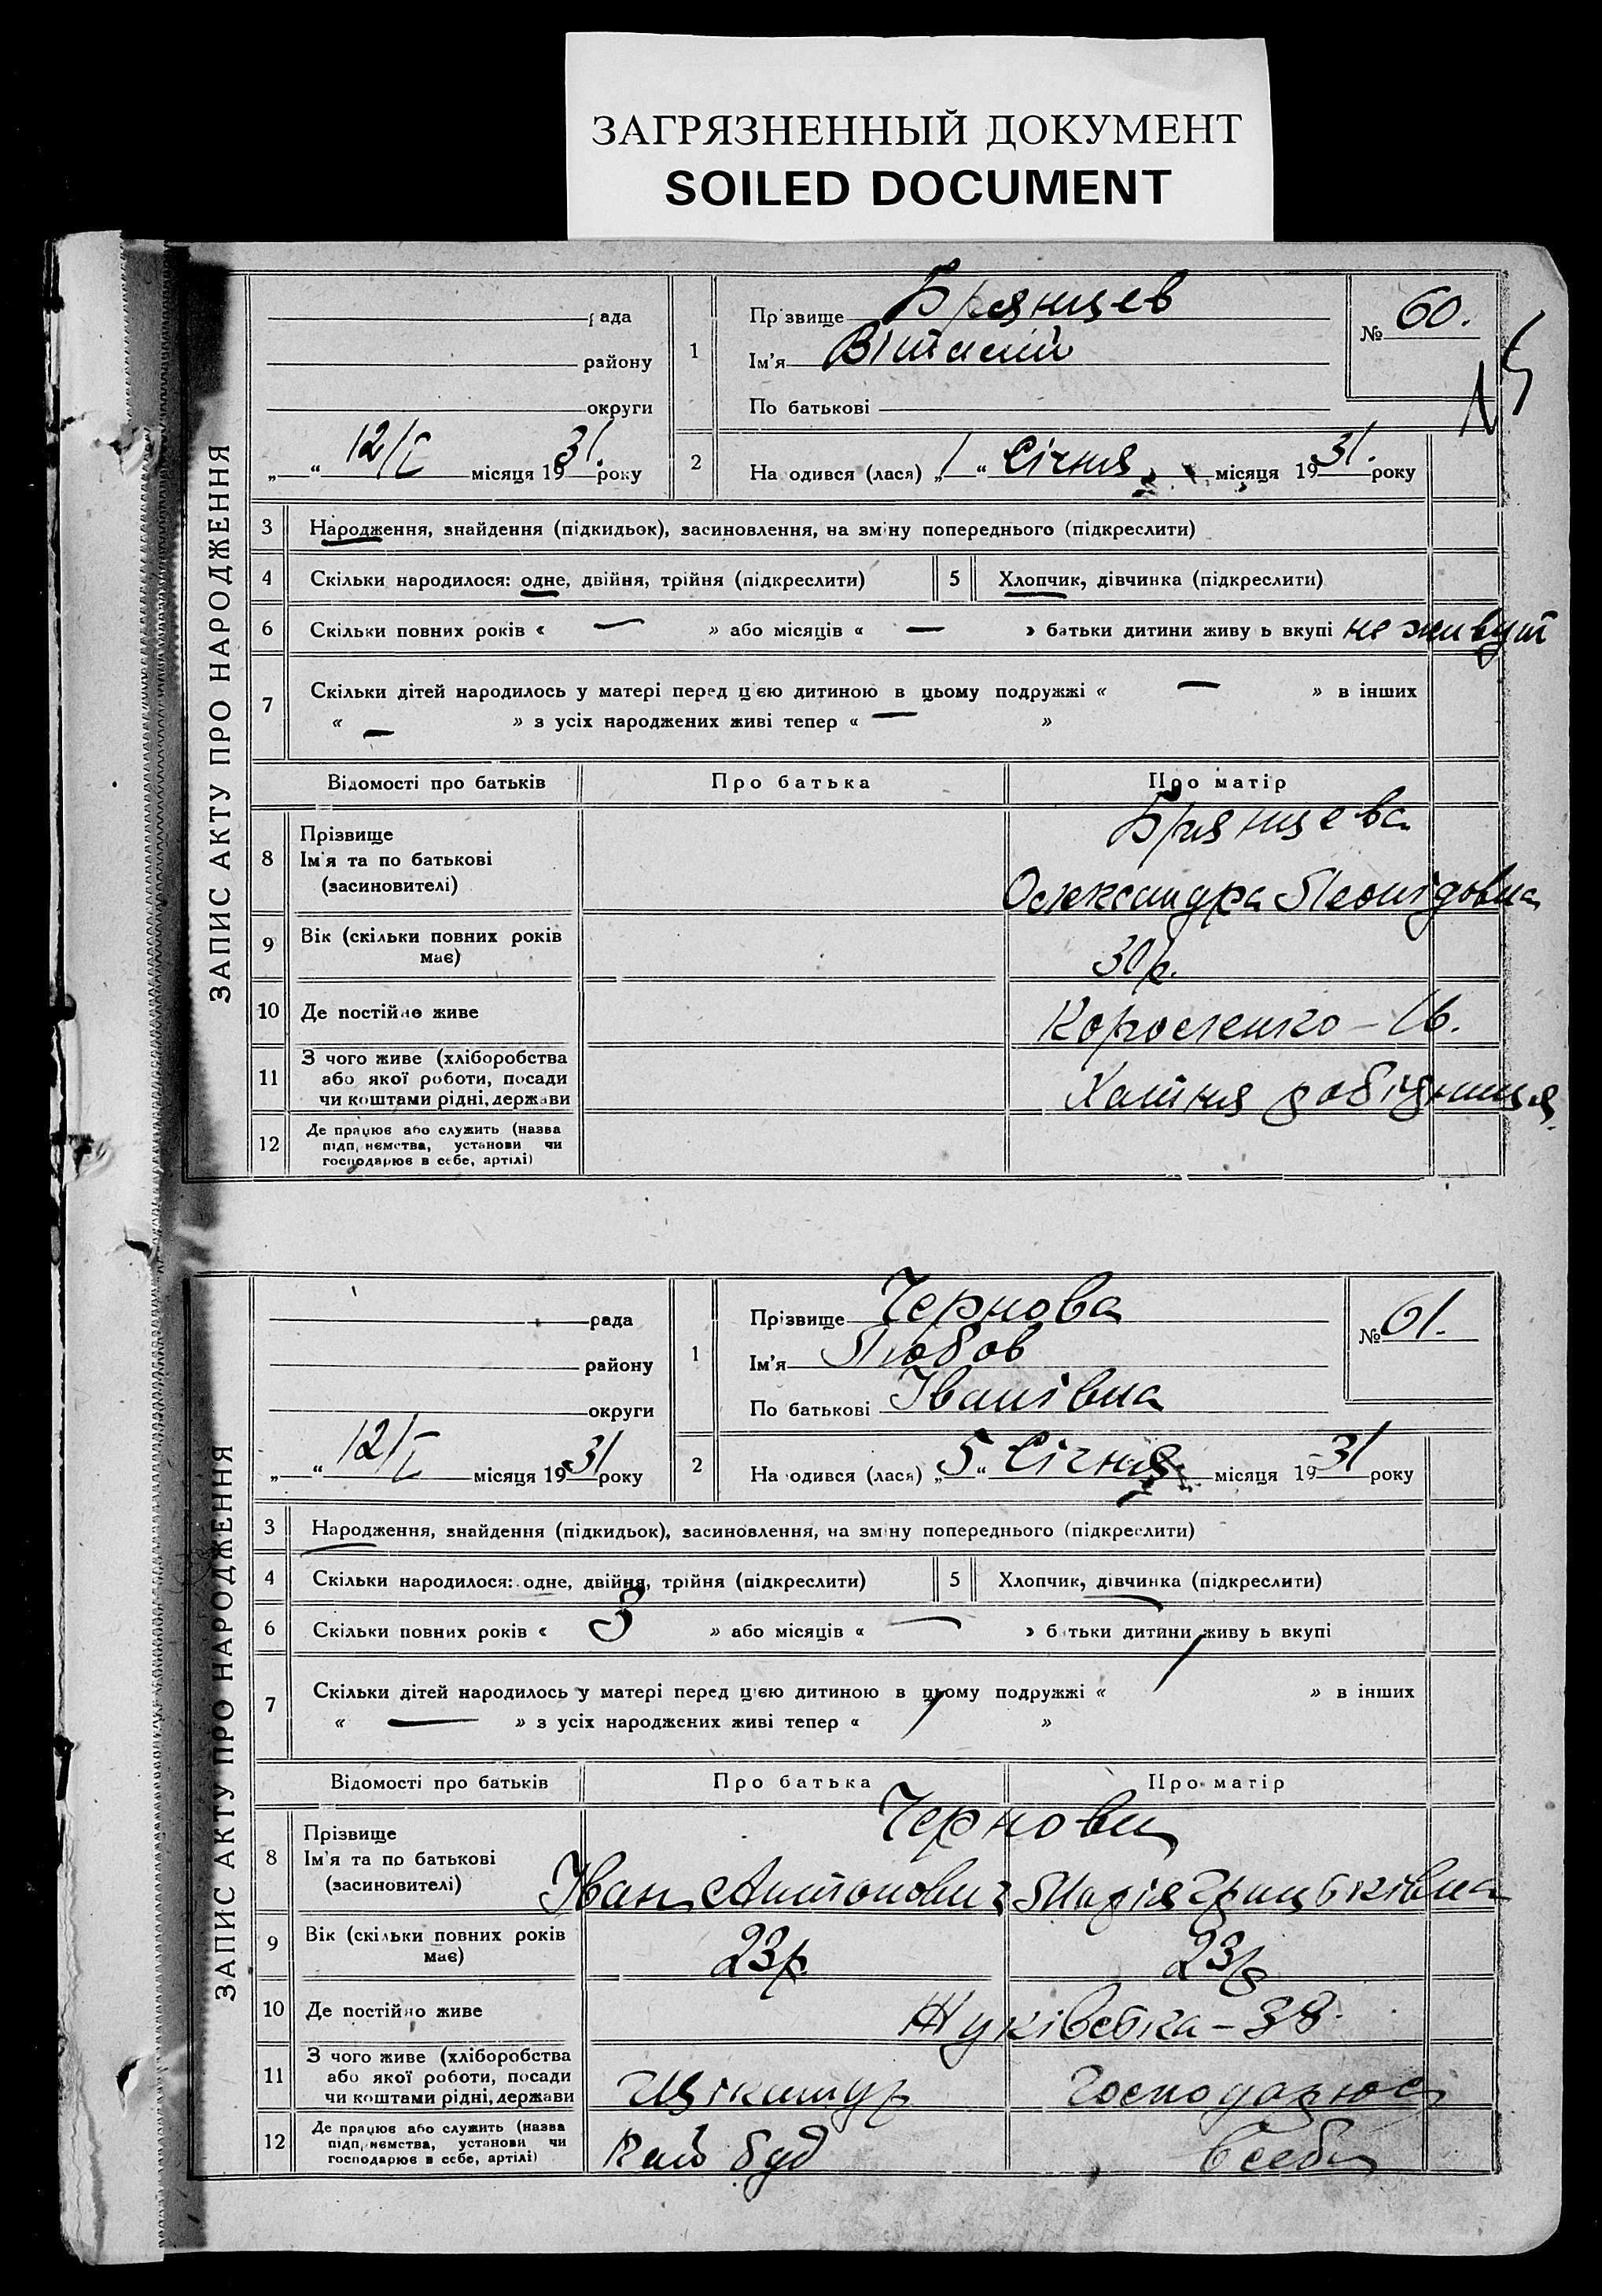 ЗАГРЯЗНЕННЫЙ ДОКУМЕНТ
SOILED DOCUMENT
ЗАПИС АКТУ ПРО НАРОДЖЕННЯ
рада
району
округи
„ “ 12/I місяця 1931. року
1
Прізвище Брянцев
Ім'я Віталий
По батькові
№ 60.
15
2
На одився (лася) „1“ Січня місяця 1931. року
3 Народження, знайдення (підкидьок), засиновлення, на зміну попереднього (підкреслити)
4 Скільки народилося: одне, двійня, трійня (підкреслити) 5 Хлопчик, дівчинка (підкреслити)
6 Скільки повних років « — » або місяців « — » батьки дитини живу ь вкупі не живут
7 Скільки дітей народилось у матері перед цією дитиною в цьому подружжі « — » в інших
« — » з усіх народжених живі тепер « — »
Відомості про батьків Про батька Про матір
8 Прізвище
Ім'я та по батькові
(засиновителі)
Брянцева
Олександра Леонідовна
9 Вік (скільки повних років має) 30 р.
10 Де постійно живе Короленко – 16.
11 З чого живе (хліборобства
або якої роботи, посади
чи коштами рідні, держави
Хатня робітниця
12 Де працює або служить (назва
підп, немства, установи чи
господарює в себе, артілі)
ЗАПИС АКТУ ПРО НАРОДЖЕННЯ
рада
району
округи
„ “ 12/I місяця 1931 року
1
Прізвище Чернова
Ім'я Любов
По батькові Іванівна
№ 61.
2
На одився (лася) „5“ Січня місяця 1931 року
3 Народження, знайдення (підкидьок), засиновлення, на зміну попереднього (підкреслити)
4 Скільки народилося: одне, двійня, трійня (підкреслити) 5 Хлопчик, дівчинка (підкреслити)
6 Скільки повних років « 3 » або місяців « — » б тьки дитини живу ь вкупі
7 Скільки дітей народилось у матері перед цією дитиною в цьому подружжі « 1 » в інших
« — » з усіх народжених живі тепер « 1 »
Відомості про батьків Про батька Про матір
8 Прізвище
Ім'я та по батькові
(засиновителі)
Чернови
Іван Антонович Марія Грицьківна
9 Вік (скільки повних років має) 23 р. 23 р
10 Де постійно живе Жуківська – 38.
11 З чого живе (хліборобства
або якої роботи, посади
чи коштами рідні, держави
Щікатур Господарює
12 Де працює або служить (назва
підп, немства, установи чи
господарює в себе, артілі)
буд в себе